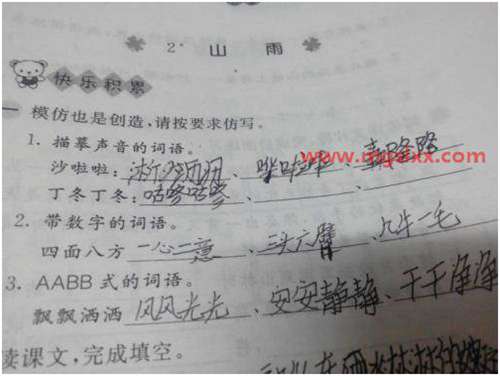 2 山 雨
快乐积累
一 模仿也是创造,请按要求仿写。
1. 描摹声音的词语。
沙啦啦:、哗啦啦、轰隆隆
www.mqexx.com
丁冬丁冬:咕咚咕咚、
2. 带数字的词语。
四面八方 一心二意、三头六臂、九牛一毛
3. AABB 式的词语。
飘飘洒洒 风风光光、安安静静、干干净净
读课文,完成填空。